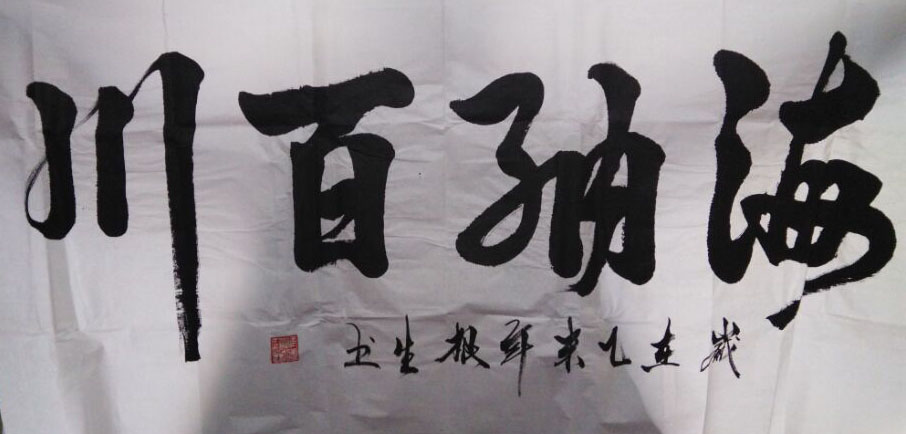 海纳百川
岁在乙未年根生书